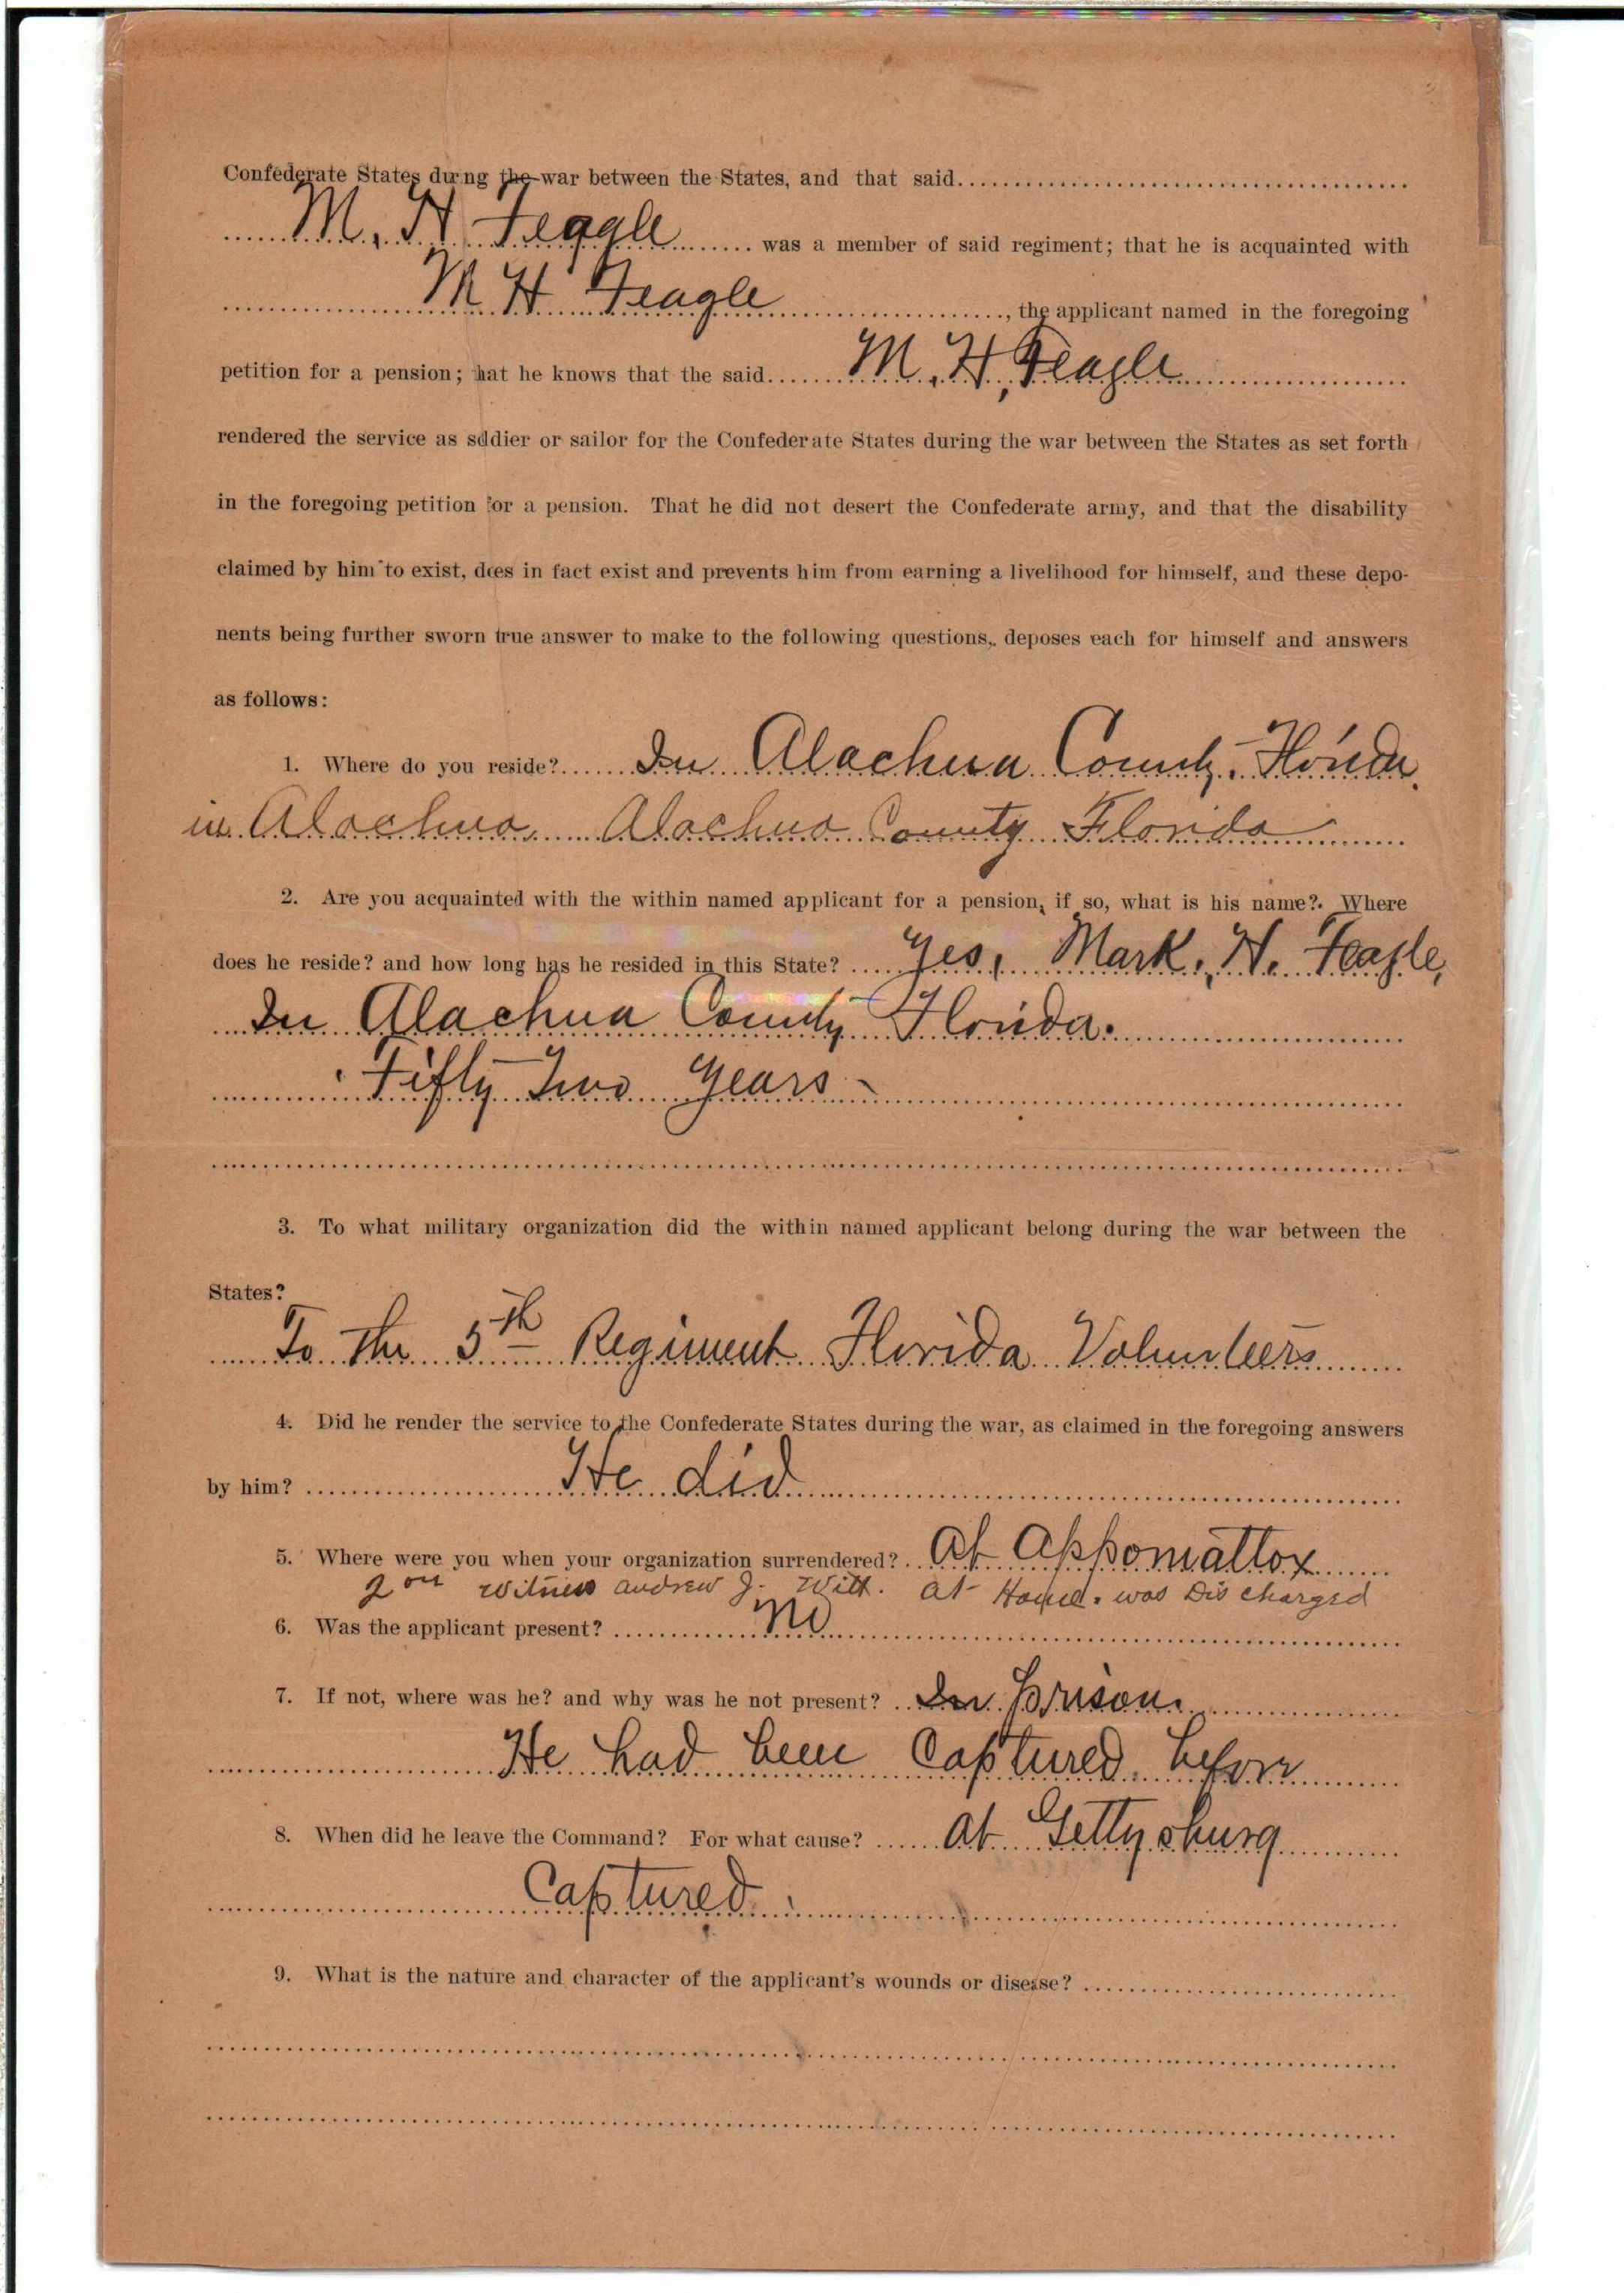 Confederate States during the war between the States, and that said
M. H Feagle was a member of said regiment; that he is acquainted with
M H Feagle, the applicant named in the foregoing
petition for a pension; hat he knows that the said M. H, Feagle
rendered the service as soldier or sailor for the Confederate States during the war between the States as set forth
in the foregoing petition for a pension. That he did not desert the Confederate army, and that the disability
claimed by him to exist, does in fact exist and prevents him from earning a livelihood for himself, and these depo-
nents being further sworn true answer to make to the following questions, deposes each for himself and answers
as follows:
1. Where do you reside? In Alachua County, Florida.
in Alachua Alachua County Florida
2. Are you acquainted with the within named applicant for a pension, if so, what is his name? Where
does he reside? and how long has he resided in this State? Yes, Mark. H. Feagle,
In Alachua County Florida.
Fifty Two Years
3. To what military organization did the within named applicant belong during the war between the
States?
To The 5th Regiment Florida Volunteers
4. Did he render the service to the Confederate States during the war, as claimed in the foregoing answers
by him? He did
5. Where were you when your organization surrendered? At Appomattox
2nd witness Andrew J. Witt. at Home. was Discharged
6. Was the applicant present? No
7. If not, where was he? and why was he not present? In Prison.
He had been Captured before
8. When did he leave the Command? For what cause? At Gettysburg
Captured.
9. What is the nature and character of the applicant's wounds or disease?